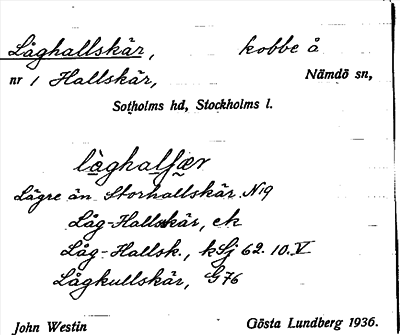 Låghallskär, kobbe å
nr 1 Hallskär, Nämdö sn,
Sotholms hd, Stockholms l.
làghalʃær
Lägre än Storhallskär N19
Låg-Hallskär, ek
Låg-Hallsk., kSj 62.10.V
Lågkullskär, G76
John Westin Gösta Lundberg 1936.